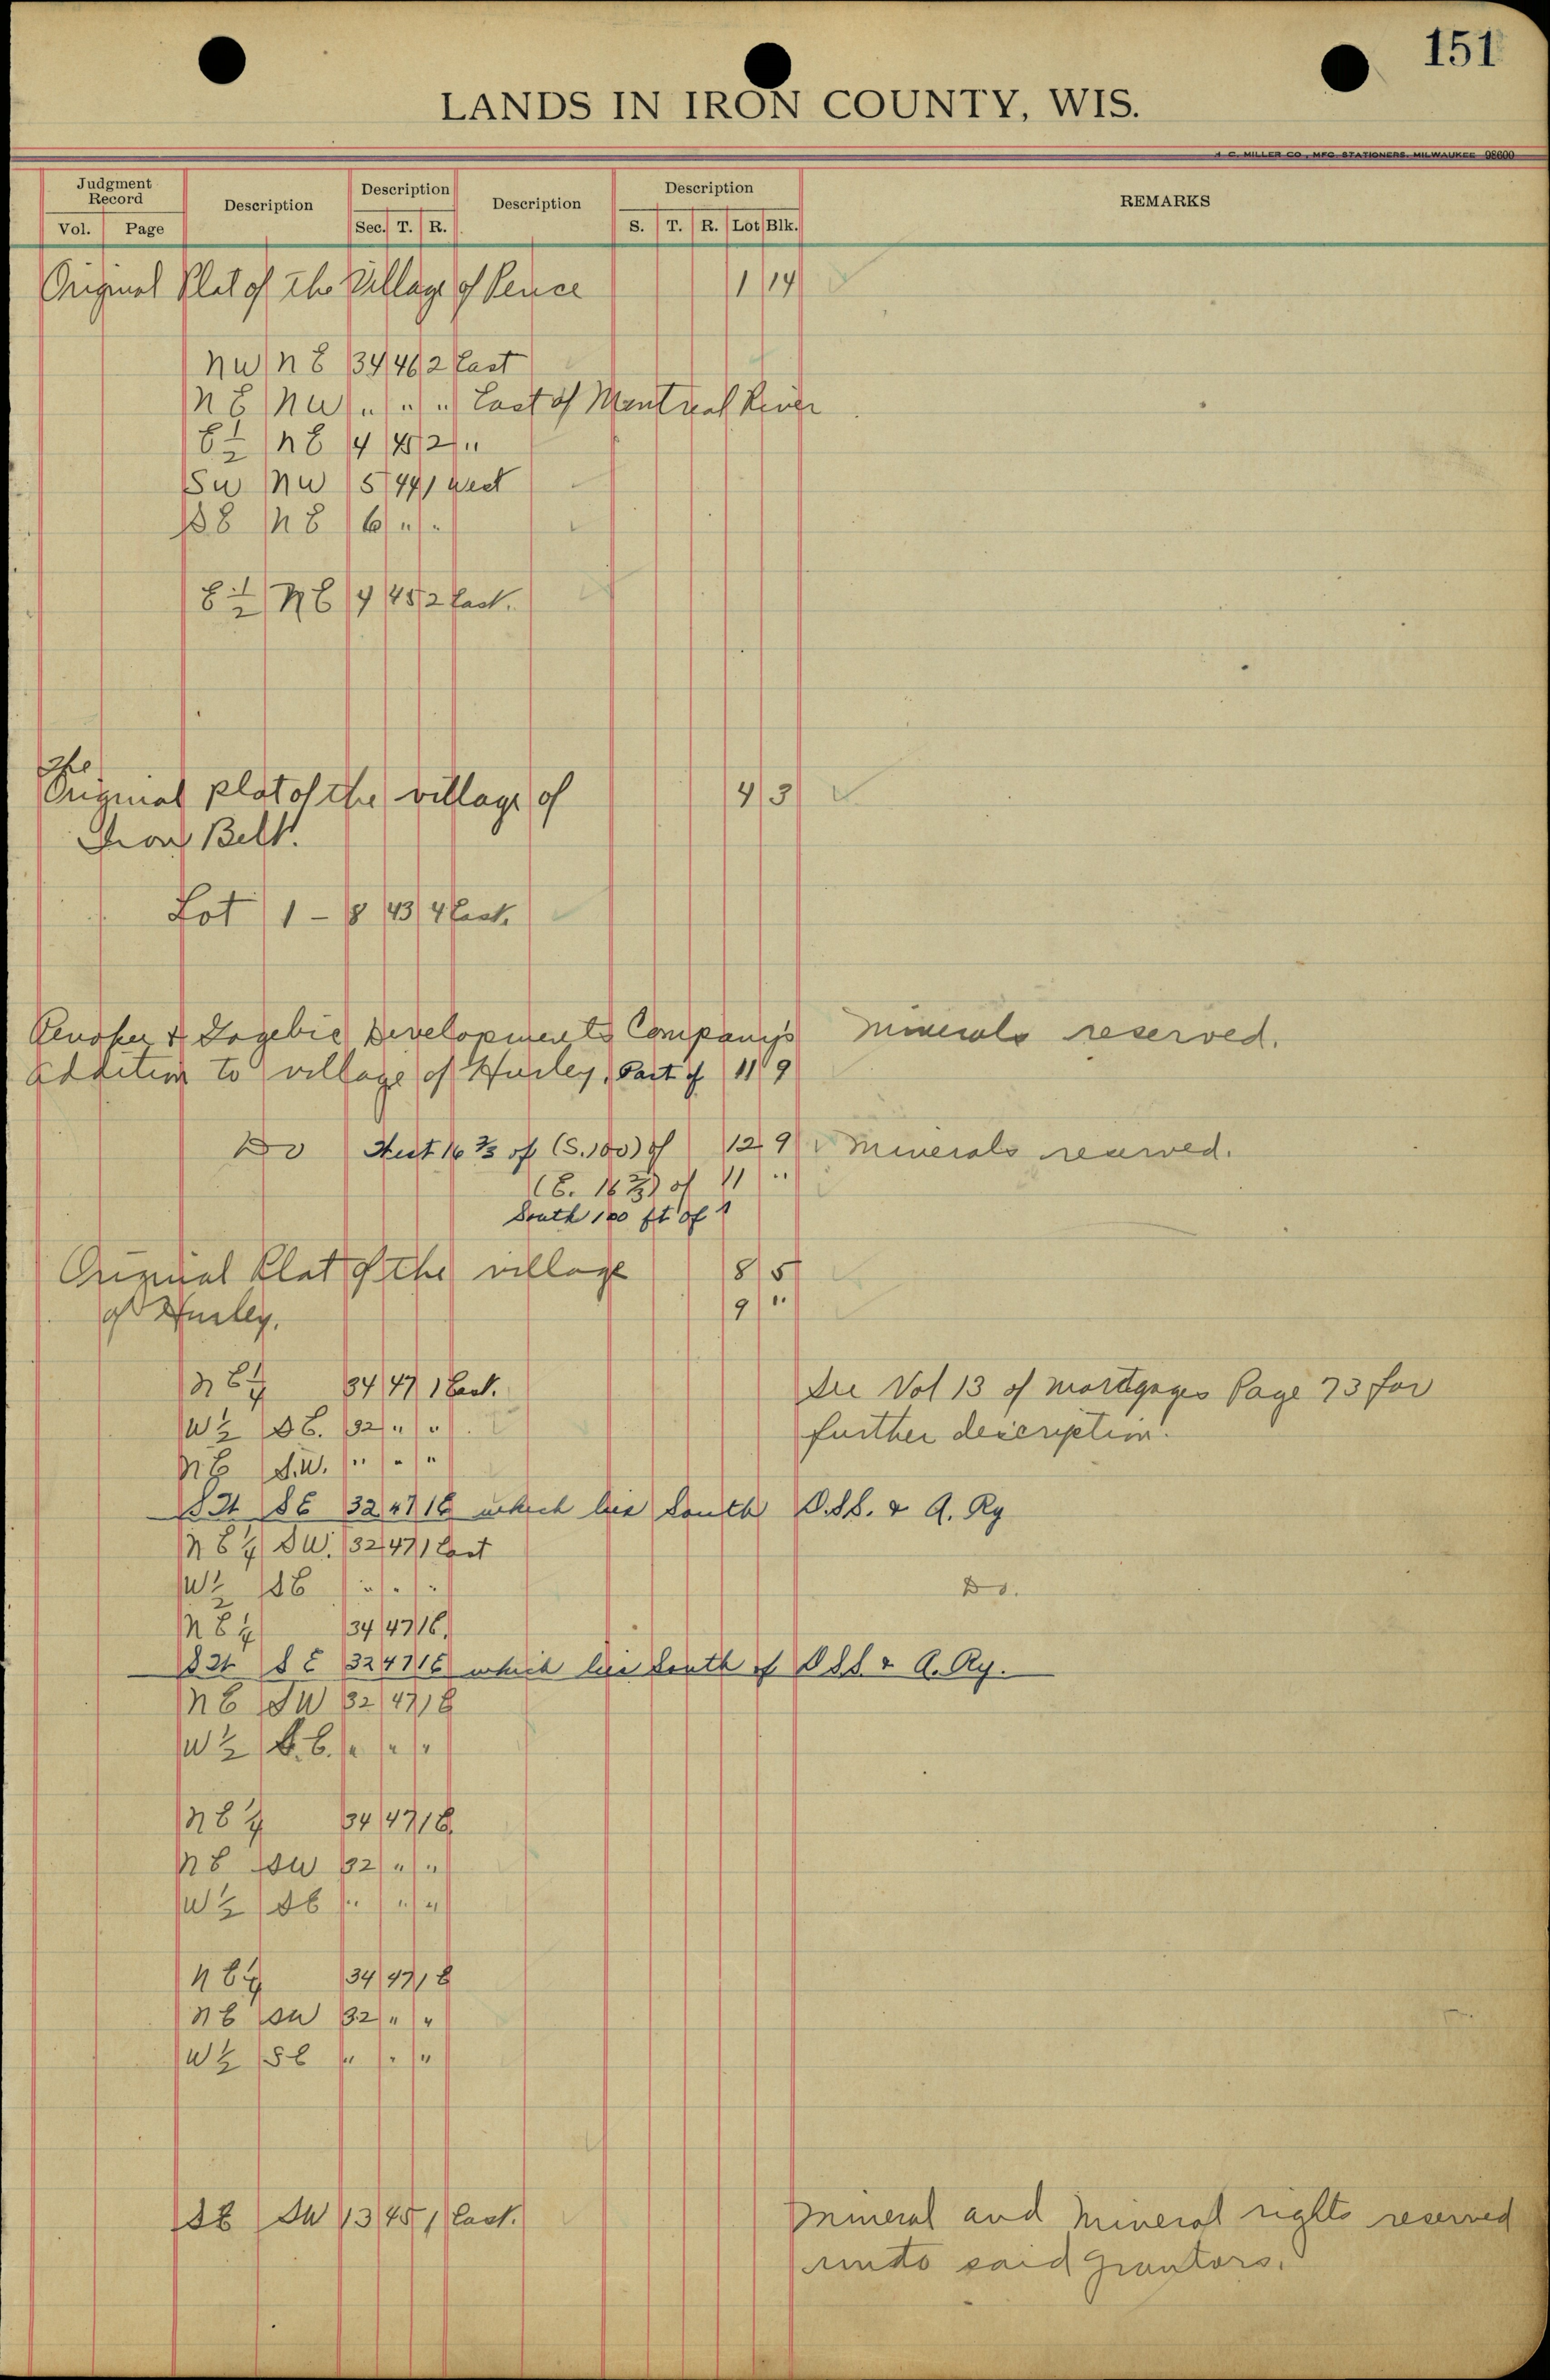 151
LANDS IN IRON COUNTY, WIS.
H. C. MILLER CO., MFG. STATIONERS, MILWAUKEE 98600
Judgment Record Description Description Description Description REMARKS
Vol. Page Sec. T. R. S. T. R. Lot Blk.
Original Plat of The Village of Pence 1 14
NW NE 34 46 2 East
NE NW " " " East of Montreal River
E ½ NE 4 45 2 "
SW NW 5 44 1 West
SE NE 6 " "
E ½ NE 4 45 2 East.
The
Original plat of the village of 4 3
Iron Belt.
Lot 1 - 8 43 4 East.
Penokee & Gogebic Developments Company's Minerals reserved.
addition to village of Hurley, Part of 11 9
Do West 16 ⅔ of (S. 100) of 12 9 Minerals reserved.
(E. 16 ⅔) of 11 "
South 100 ft of 1
Original Plat of the village 8 5
of Hurley. 9 "
NE ¼ 34 47 1 East. See Vol 13 of mortgages Page 73 for
W ½ SE. 32 " " further description.
NE S.W. " " "
S 2t SE 32 47 1E which lies South D.SS. & A. Ry
NE ¼ SW. 32 47 1 East
W ½ SE " " " Do.
NE ¼ 34 47 1E.
S 2t SE 32 47 1E which lies South of DSS & A. Ry.
NE SW 32 47 1 E
W ½ S.E. " " "
NE ¼ 34 47 1 E.
NE SW 32 " "
W ½ SE " " "
NE ¼ 34 47 1 E
NE SW 32 " "
W ½ SE " " "
SE SW 13 45 1 East. Mineral and Mineral rights reserved
unto said Grantors.